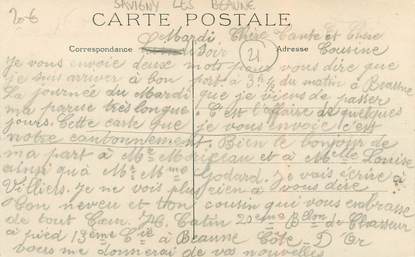 20-6
SAVIGNY LES BEAUNE
CARTE POSTALE
Correspondance
Adresse
21
Mardi Soir
Chère Tante et Chère Cousine
Je vous envoie deux mots pour vous dire que
je suis arriver à bon port à 3h½ du matin à Beaune
La journée du Mardi que je viens de passer
ma parue très longue. C'est l'affaire de quelques
jours. Cette carte que je vous envoie c'est
notre cantonnement. Bien le bonjour de
ma part à Me Morizeau et à Melle Louise
ainsi qu'à Me Me Godard. Je vais écrire à
Villiers. Je ne vois plus rien à vous dire
Ton neveu et ton cousin qui vous embrasse
de tout Cœur. H. Catin 20ème Blon de Chasseur
à pied 13ème Cie à Beaune Côte-D'Or
vous me donnerai de vos nouvelles